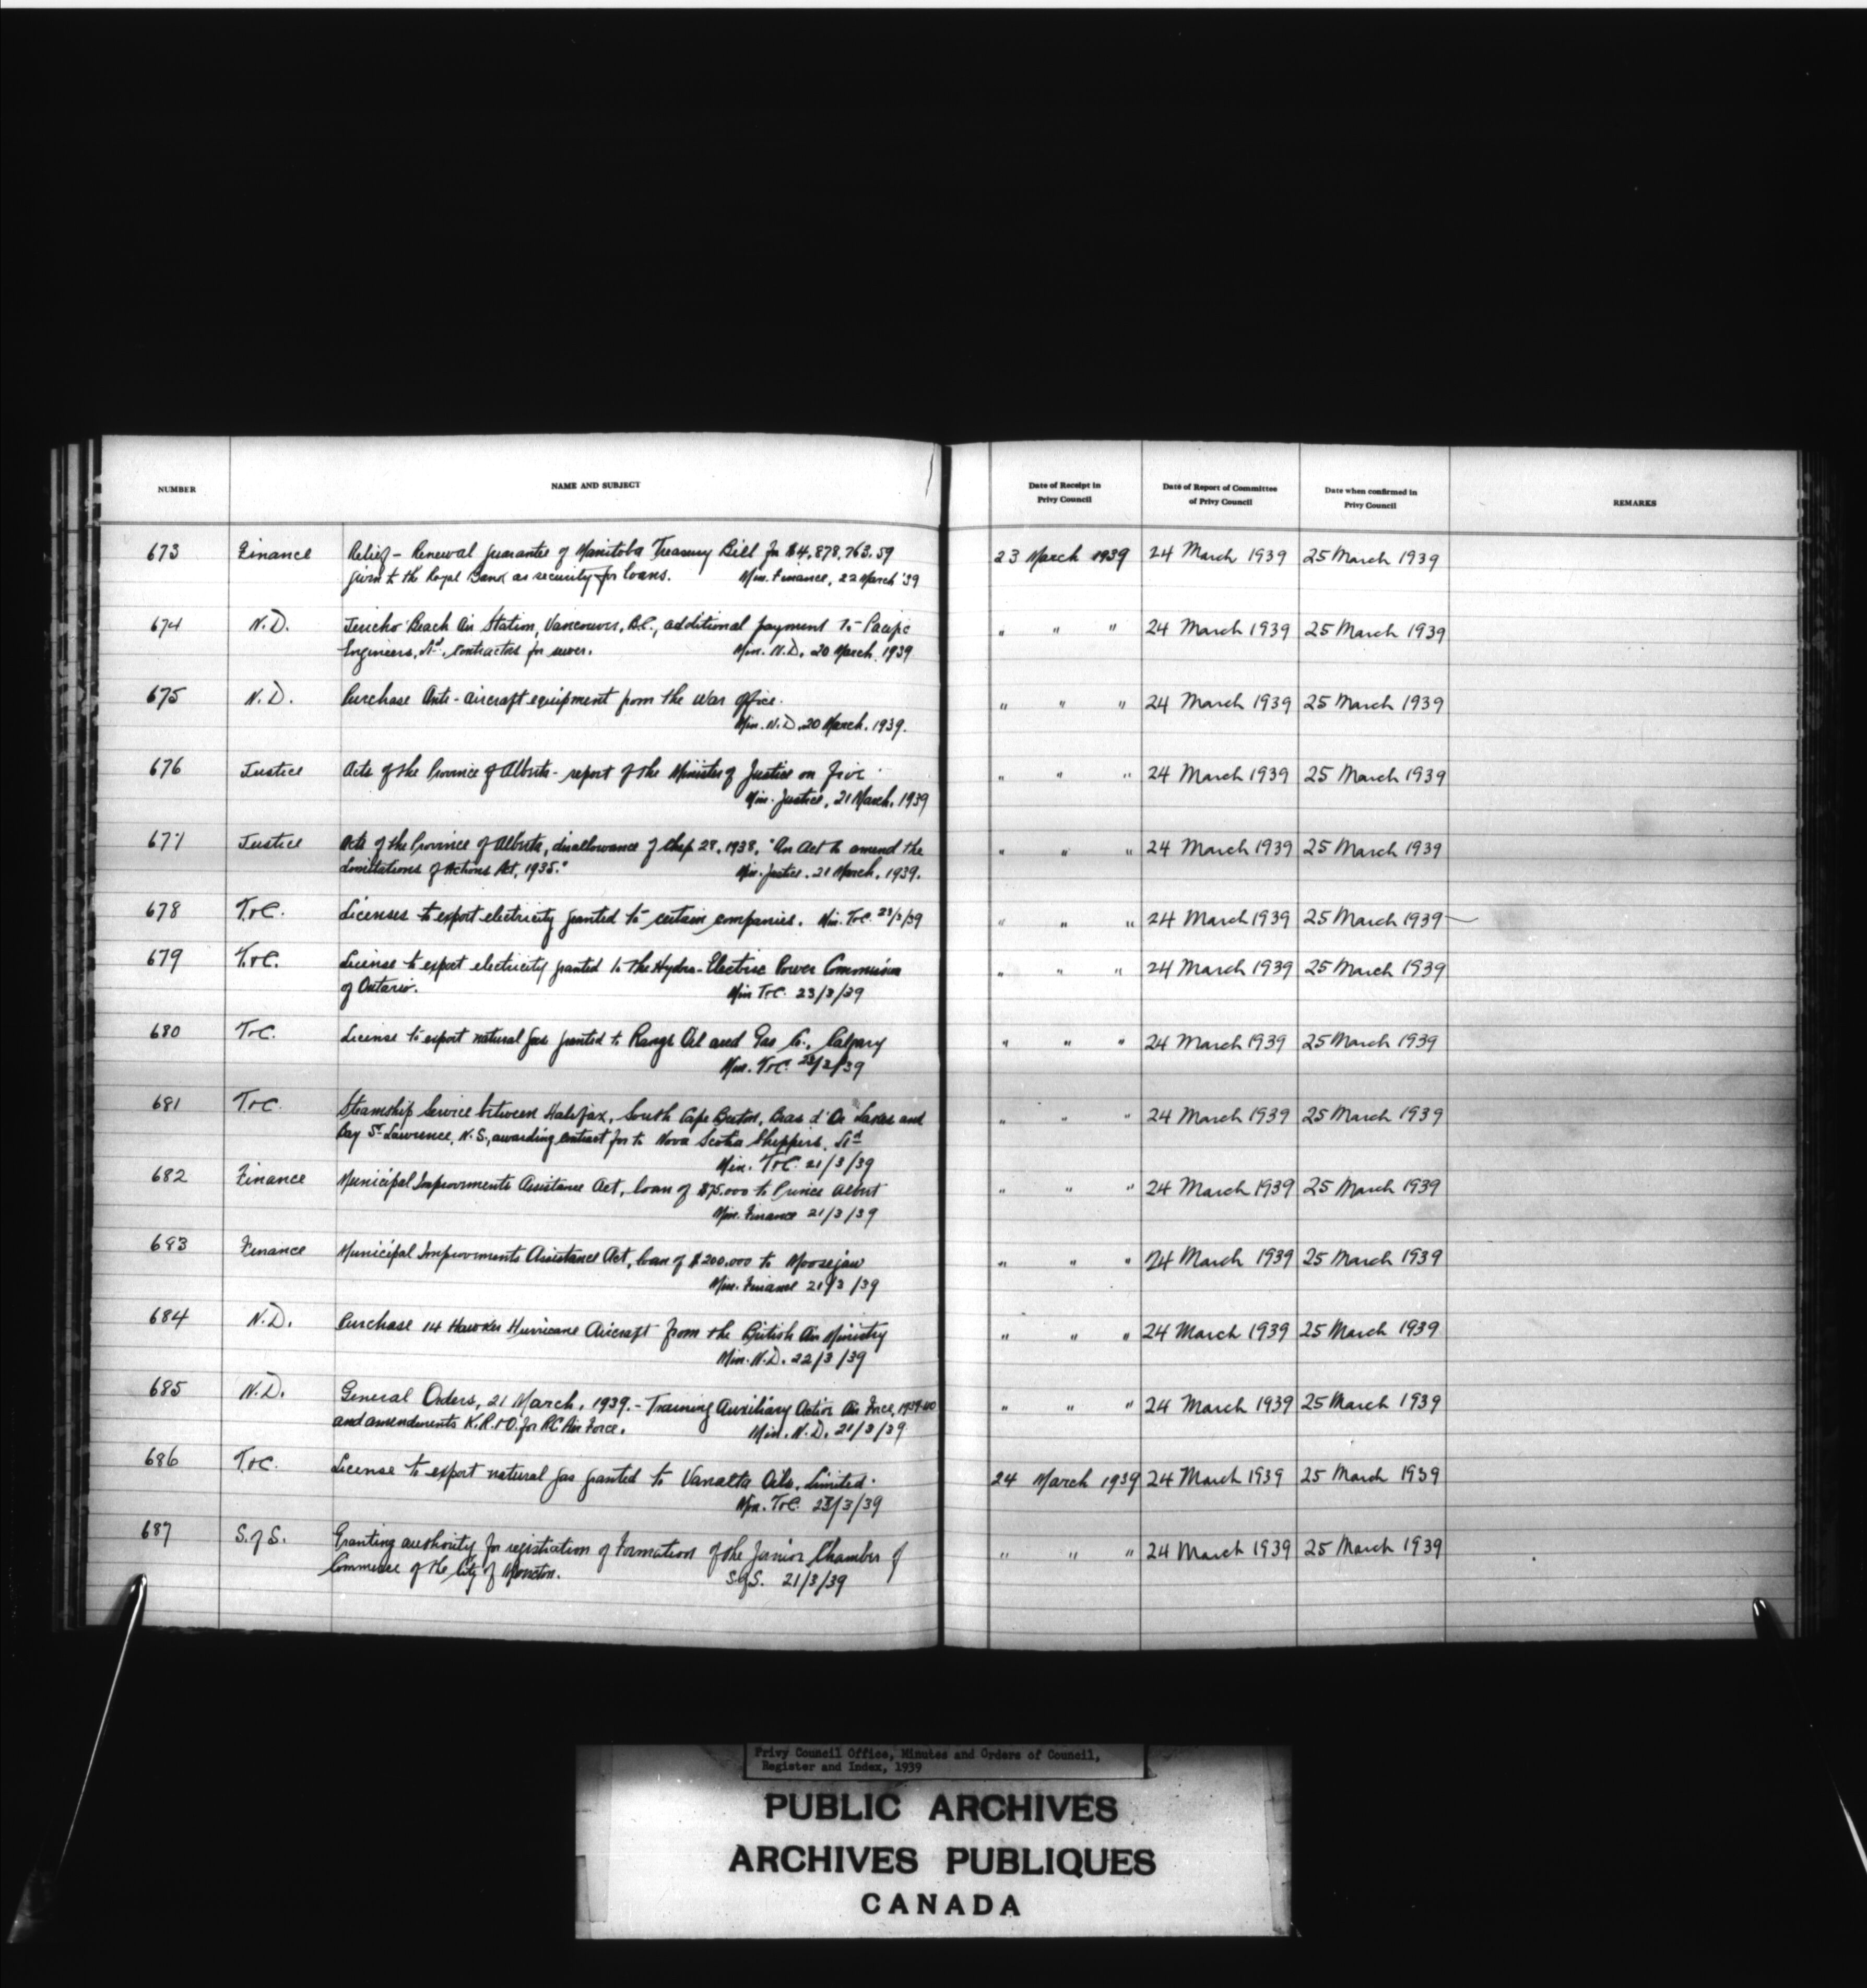 NUMBER NAME AND SUBJECT Date of Receipt in Privy Council Date of Report of Committee of Privy Council Date when confirmed in Privy Council REMARKS
673 Finance Relief - Renewal guarantee of Manitoba Treasury Bill for $4,878,763.59 23 March 1939 24 March 1939 25 March 1939
given to the Royal Bank as security for loans. Min. Finance, 22 March '39
674 N.D. Jericho Beach Air Station, Vancouver, B.C., additional payment to Pacific " " " 24 March 1939 25 March 1939
Engineers, Ltd, contractors for sewer. Min. N.D. 20 March, 1939
675 N.D. Purchase Anti-aircraft equipment from the War Office. " " " 24 March 1939 25 March 1939
Min. N.D. 20 March, 1939.
676 Justice Acts of the Province of Alberta - report of the Minister of Justice on five " " " 24 March 1939 25 March 1939
Min. Justice, 21 March, 1939
677 Justice Acts of the Province of Alberta, disallowance of Chap 28, 1938, "An Act to amend the " " " 24 March 1939 25 March 1939
Limitations of Actions Act, 1935." Min. Justice. 21 March, 1939.
678 T.&C. Licenses to export electricity granted to certain companies. Min. T&C. 23/3/39 " " " 24 March 1939 25 March 1939
679 T.&C. License to export electricity granted to the Hydro-Electric Power Commission " " " 24 March 1939 25 March 1939
of Ontario. Min T&C. 23/3/39
680 T&C. License to export natural gas granted to Range Oil and Gas Co., Calgary " " " 24 March 1939 25 March 1939
Min. T&C. 23/3/39
681 T&C. Steamship Service between Halifax, South Cape Breton, Bras d'Or Lakes and " " " 24 March 1939 25 March 1939
Bay St. Lawrence, N.S., awarding contract for to Nova Scotia Shippers, Ltd
Min. T&C. 21/3/39
682 Finance Municipal Improvements Assistance Act, loan of $75,000 to Prince Albert " " " 24 March 1939 25 March 1939
Min. Finance 21/3/39
683 Finance Municipal Improvements Assistance Act, loan of $200,000 to Moosejaw " " " 24 March 1939 25 March 1939
Min. Finance 21/3/39
684 N.D. Purchase 14 Hawker Hurricane Aircraft from the British Air Ministry " " " 24 March 1939 25 March 1939
Min. N.D. 22/3/39
685 N.D. General Orders, 21 March, 1939. - Training Auxiliary Active Air Force, 1939-40 " " " 24 March 1939 25 March 1939
and amendments K.R.&O. for RC Air Force. Min. N.D. 21/3/39
686 T.&C. License to export natural gas granted to Vanalta Oils, Limited. 24 March 1939 24 March 1939 25 March 1939
Min. T&C. 23/3/39
687 S.of S. Granting authority for registration of Formation of the Junior Chamber of " " " 24 March 1939 25 March 1939
Commerce of the City of Moncton. S.of S. 21/3/39
Privy Council Office, Minutes and Orders of Council,
Register and Index, 1939
PUBLIC ARCHIVES
ARCHIVES PUBLIQUES
CANADA